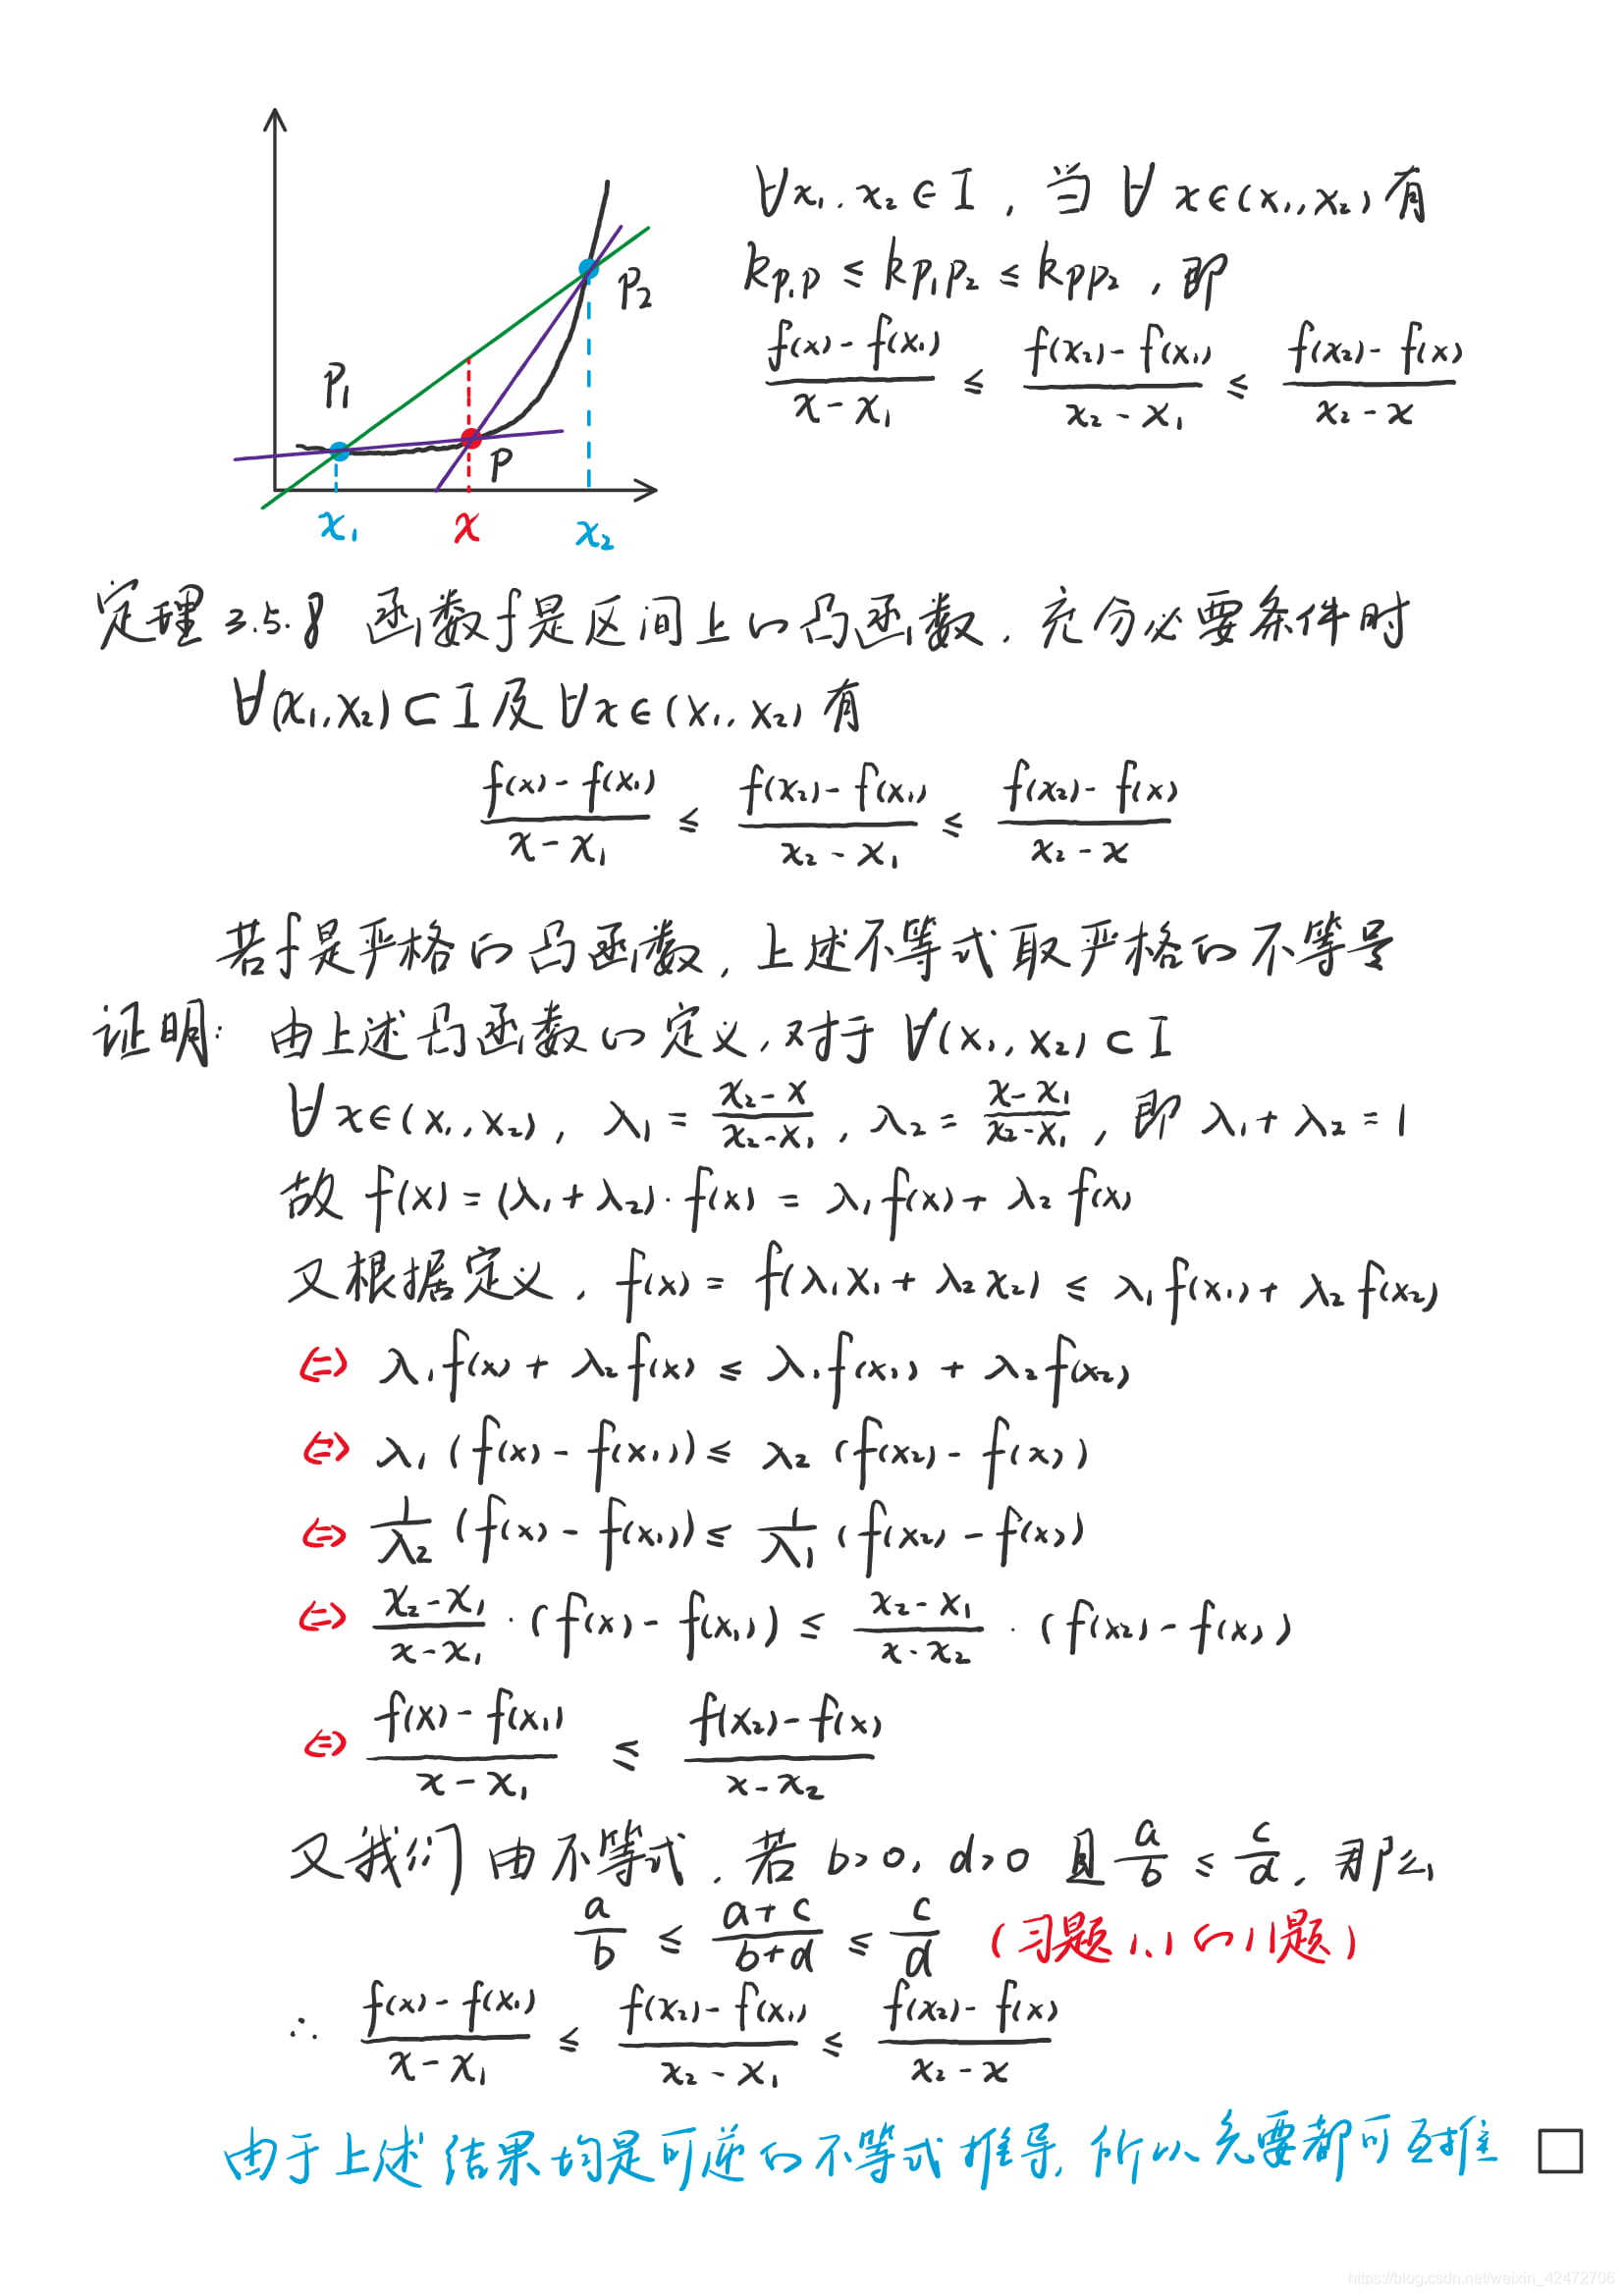 P₁
P₂
P
x₁ x x₂
∀x₁, x₂ ∈ I , 当 ∀ x∈(x₁, x₂) 有
k_{P₁P} ≤ k_{P₁P₂} ≤ k_{PP₂} , 即
\frac{f(x)-f(x₁)}{x-x₁} ≤ \frac{f(x₂)-f(x₁)}{x₂-x₁} ≤ \frac{f(x₂)-f(x)}{x₂-x}
定理 3.5.8 函数f是区间上的凸函数, 充分必要条件时
∀(x₁, x₂) ⊂ I 及 ∀x∈(x₁, x₂) 有
\frac{f(x)-f(x₁)}{x-x₁} ≤ \frac{f(x₂)-f(x₁)}{x₂-x₁} ≤ \frac{f(x₂)-f(x)}{x₂-x}
若f是严格的凸函数, 上述不等式取严格的不等号
证明: 由上述凸函数的定义, 对于 ∀(x₁, x₂) ⊂ I
∀ x∈(x₁, x₂), λ₁ = \frac{x₂-x}{x₂-x₁}, λ₂ = \frac{x-x₁}{x₂-x₁}, 即 λ₁+λ₂=1
故 f(x) = (λ₁+λ₂)·f(x) = λ₁f(x)+λ₂f(x)
又根据定义, f(x) = f(λ₁x₁+λ₂x₂) ≤ λ₁f(x₁)+λ₂f(x₂)
⇔ λ₁f(x)+λ₂f(x) ≤ λ₁f(x₁)+λ₂f(x₂)
⇔ λ₁(f(x)-f(x₁)) ≤ λ₂(f(x₂)-f(x))
⇔ \frac{1}{λ₂}(f(x)-f(x₁)) ≤ \frac{1}{λ₁}(f(x₂)-f(x))
⇔ \frac{x₂-x₁}{x-x₁}·(f(x)-f(x₁)) ≤ \frac{x₂-x₁}{x-x₂}·(f(x₂)-f(x))
⇔ \frac{f(x)-f(x₁)}{x-x₁} ≤ \frac{f(x₂)-f(x)}{x-x₂}
又我们由不等式, 若 b>0, d>0 且 \frac{a}{b} ≤ \frac{c}{d}, 那么
\frac{a}{b} ≤ \frac{a+c}{b+d} ≤ \frac{c}{d} (习题1.1的11题)
∴ \frac{f(x)-f(x₁)}{x-x₁} ≤ \frac{f(x₂)-f(x₁)}{x₂-x₁} ≤ \frac{f(x₂)-f(x)}{x₂-x}
由于上述结果均是可逆的不等式推导, 所以充要都可互推 □
https://blog.csdn.net/weixin_42472706